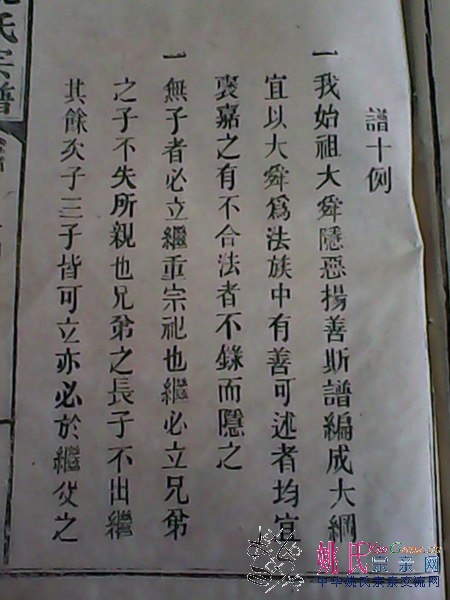 譜十例
一我始祖大舜隱惡揚善斯譜編成大綱
宜以大舜爲法族中有善可述者均宜
褒嘉之有不合法者不錄而隱之
一無子者必立繼重宗祀也繼必立兄弟
之子不失所親也兄弟之長子不出繼
其餘次子三子皆可立亦必於繼父之
氏宗譜
姚氏宗亲网
中华姚氏宗亲交流网